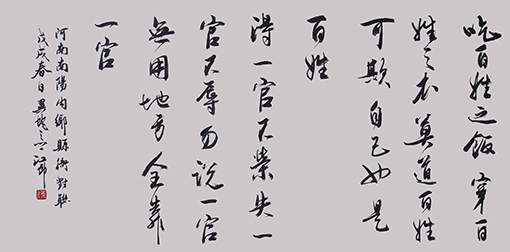 吃百姓之飯穿百
姓之衣莫道百姓
可欺自己也是
百姓
得一官不榮失一
官不辱勿說一官
無用地方全靠
一官
河南南陽內鄉縣衙對聯
戊戌春日